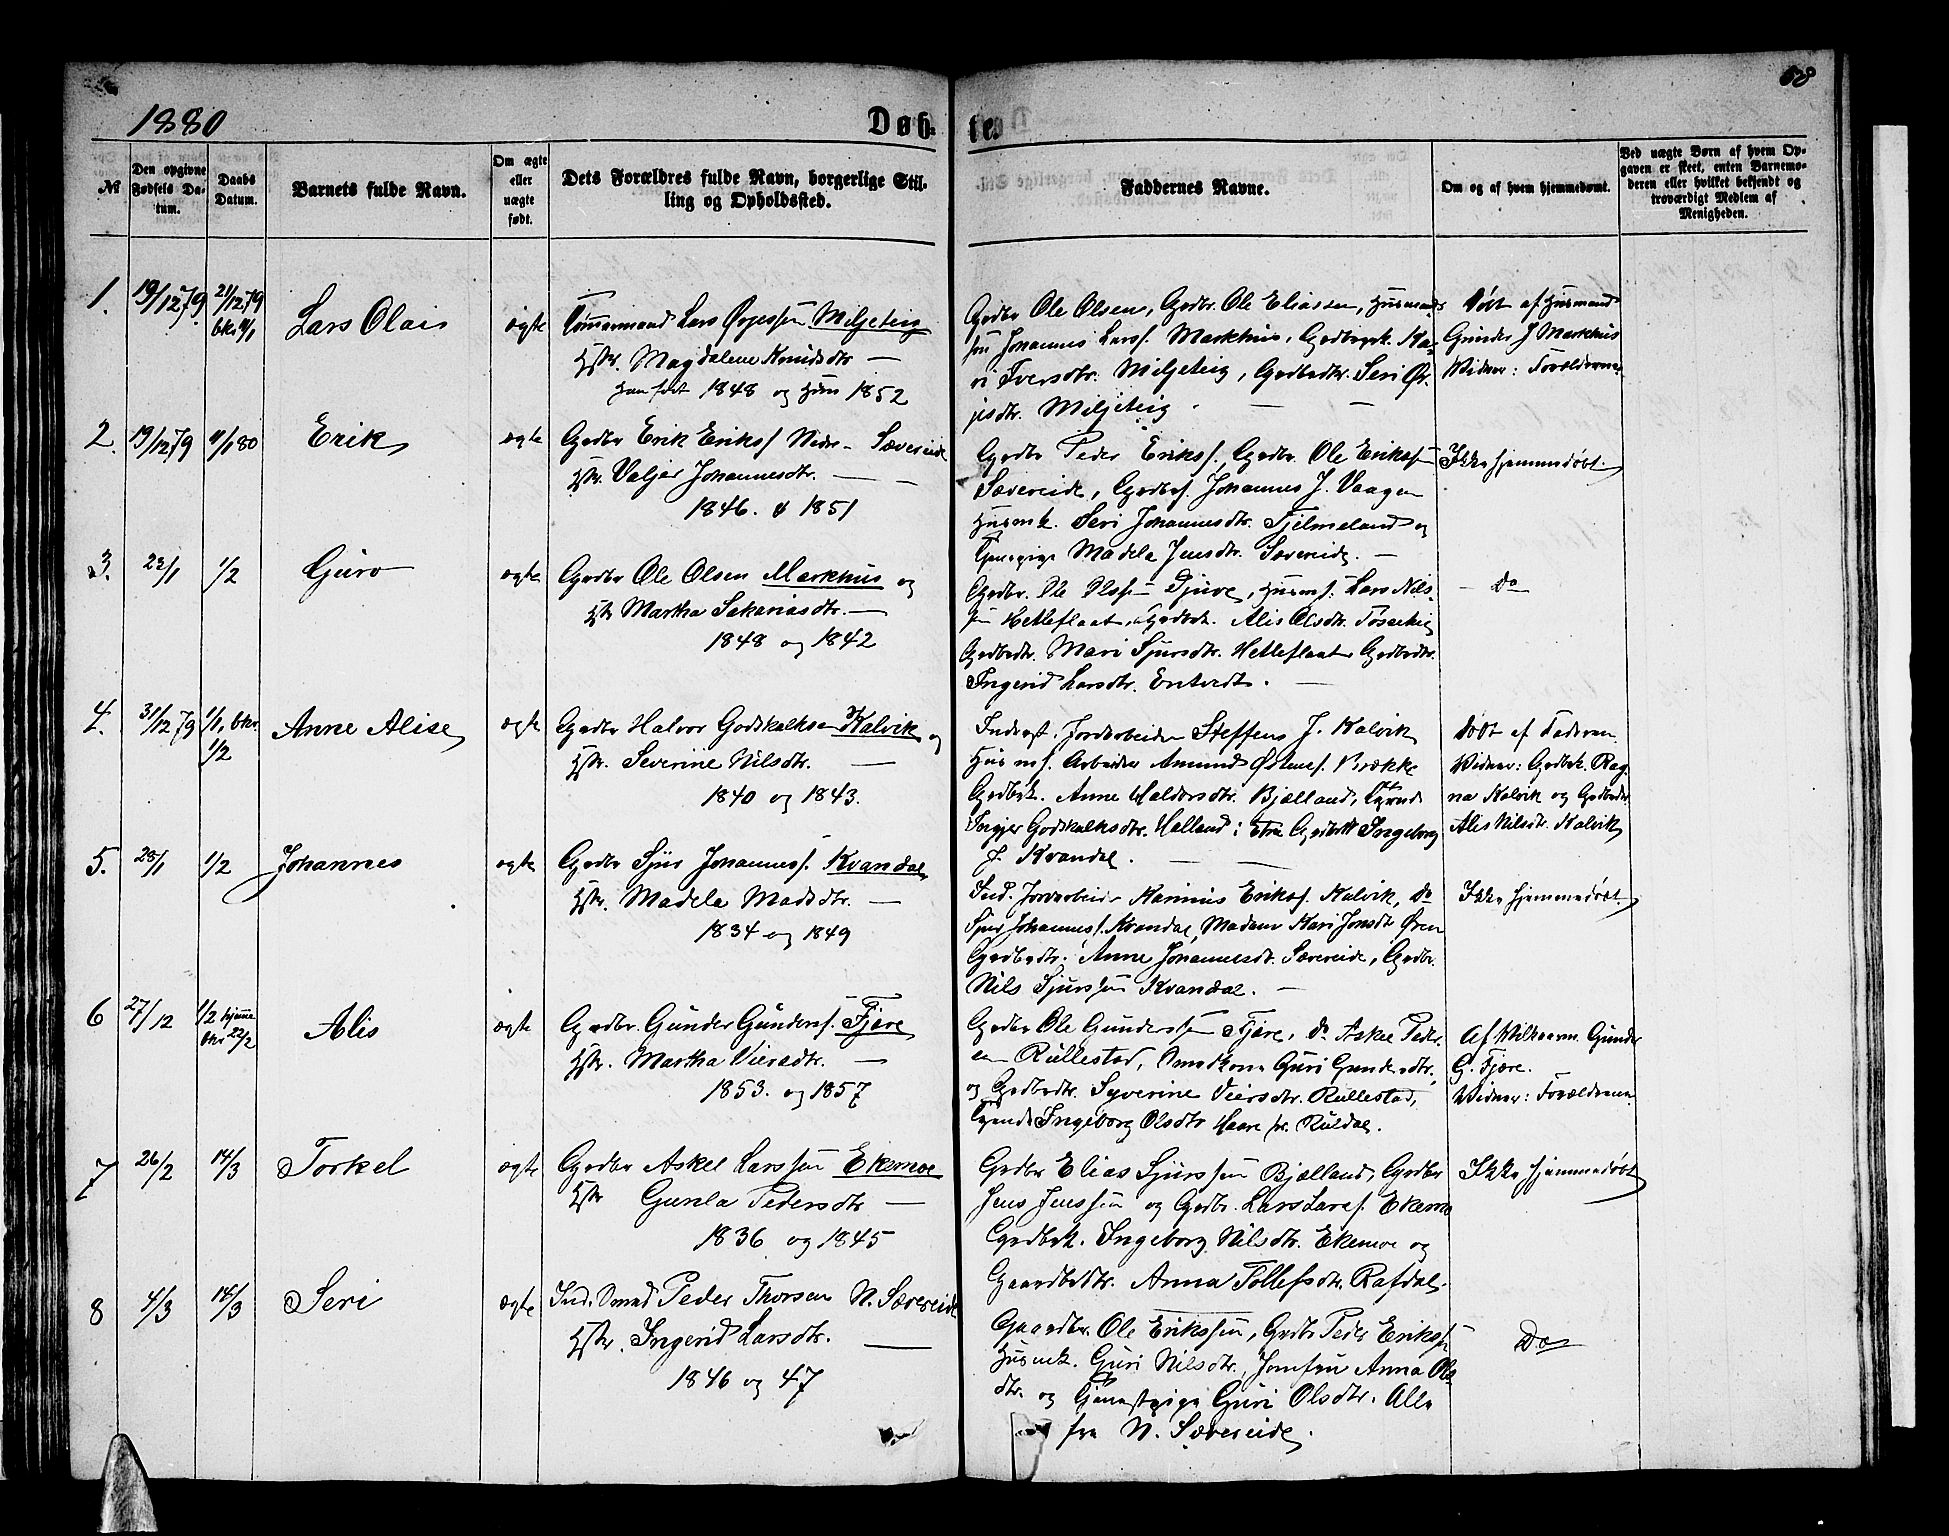 58
1880
Døb-
te.
№
Den opgivne Fødsels Datum.
Daabs Datum.
Barnets fulde Navn.
Om ægte eller uægte født.
Dets Forældres fulde Navn, borgerlige Stilling og Opholdssted.
Faddernes Navne.
Om og af hvem hjemmedøbt.
Ved uægte Børn af hvem Opgaven er skeet, enten Barnemoderen eller hvilket bekjendt og troværdigt Medlem af Menigheden.
1. 19/12 79 21/12 79 Lars Olai ægte
Tømermand Lars Ørjessen Miljeteig
Hstr. Magdalene Knudsdtr —
Han født 1848 og Hun 1852
Gdbr Ole Olsen, Gdbr. Ole Eliassen, Husmands
søn Johannes Larss. Markhus, Gdbrpk. Ka-
ri Iversdtr. Miljeteig, Gdbdtr. Seri Ør-
jesdtr. Miljeteig.
Døbt af Husmand
Gunder J Markhus
Vidner: Forældrene
2. 19/12 79 4/1 80 Erik ægte
Gdbr Erik Erikss Nedr- Sævereide
Hstr. Valjer Johannesdtr. —
1846. & 1851
Gdbr Peder Erikss. Gdbr. Ole Eriksen
Sævereide, Gdbs. Johannes J. Vaagen
Husmk. Seri Johannesdtr. Fjelmeland og
Tjenepige Madela Jensdtr. Sævereide. —
Ikke hjemmedøbt.
3. 23/1 1/2 Guro ægte
Gdbr Ole Olsen Markhus og
Hstr Martha Sakariasdtr. —
1848 og 1842
Gdbr. Ole Olssen Djuve, Husms. Lars Nils-
sen Hetleflaat, Gdbk. Alis Olsdtr. Tøsseteig
Gdbdtr. Mari Sjursdtr. Hetleflaat Gdbdtr.
Ingerid Larsdtr. —
Do
4. 31/12 79 1/1, bkr. 1/2 Anne Alise ægte
Gdbr Halvor Godskalksen Kalvik og
Hstr. Severine Nilsdtr. —
1840 og 1843.
Inderst. Jordarbeider Steffens J. Kalvik
Husms. Arbeider Amund Østens. Brække
Gdbk. Anne Haldorsdtr. Bjælland,
Ingjer Godskalksdtr. Halland; Gdbdtr Ingeborg
J. Kvandal.
Døbt af Faderen.
Vidner: Gdbk. Rag-
na Kalvik og Gdbdtr.
Alis Nilsdtr. Kalvik
5. 28/1 1/2 Johannes ægte
Gdbr Sjur Johanness. Kvandal
Hstr. Madela Madsdtr. —
1834 og 1849
Ind. Jordarbeider Rasmus Erikss. Kalvik, do
Sjur Johanness. Kvandal, Madam Kari Jonsdtr Øren
Gdbdtr. Anne Johannesdtr. Sævereide, Gdbr.
Nils Sjurssen Kvandal. —
Ikke hjemmedøbt.
6 27/12 1/2 hjeme bkr 22/2 Alis ægte
Gdbr. Gunder Gunders. Fjære
Hstr. Martha Viersdtr. —
1853. og 1857
Gdbr Ole Gunderssen Fjære, do Askel Peder-
sen Rullestad, Smedkone Guri Gundersdtr.,
og Gdbdtr. Syverine Viersdtr. Rullestad,
Ingeborg Olsdtr Haare pr. Ruldal.
Af Vilkaarm. Gunder
G. Fjære.
Vidner: Forældrene
7 26/2 14/3 Torkel ægte
Gdbr Askel Larssen Ekemoe
Hstr Gunla Pedersdtr —
1836 og 1845
Gdbr Elias Sjurssen Bjælland, Gdbr
Jens Jenssen og Gdbr. Lars Larss. Ekemo
Gdbk. Ingeborg Nilsdtr. Ekemoe og
Gaardbdtr. Anna Tollefsdtr. Rafdal.
Ikke hjemmedøbt
8 4/3 14/3 Seri ægte
Ind. Smed Peder Thorsen N. Sævereide
Hstr. Ingerid Larsdtr. —
1846 og 47
Gaardbr. Ole Erikssen, Gdbr Peder Erikss
Husmk. Guri Nilsdtr, Jomfru Anna Ols-
dtr. og Tjenestpige Guri Olsdtr. Alle
fra N. Sævereide.
Do